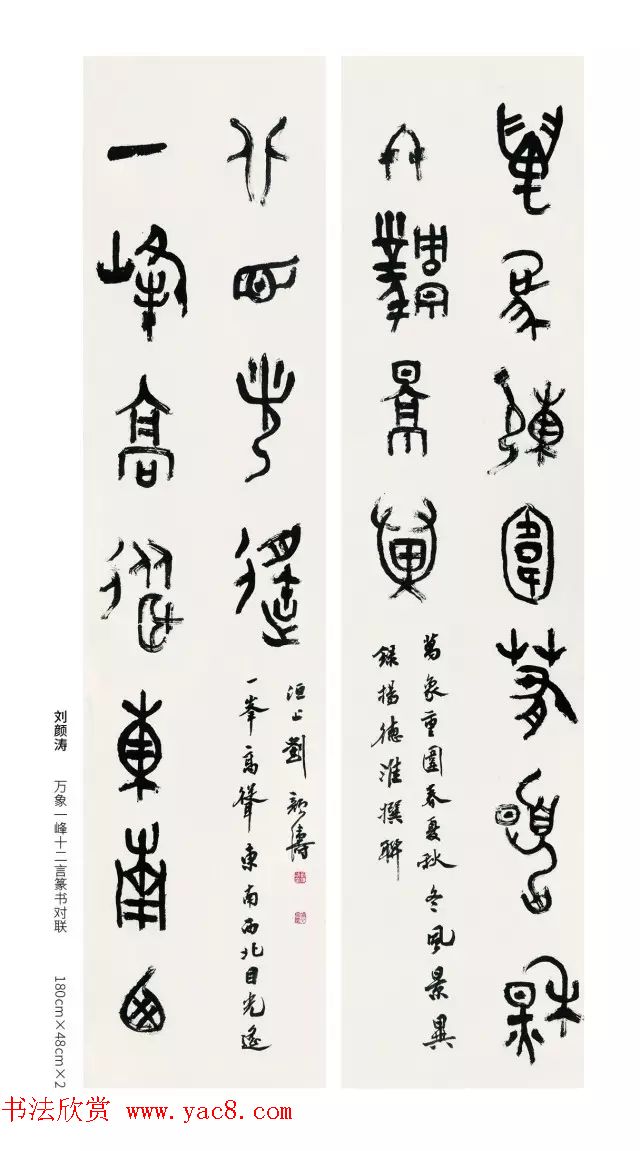 萬象重圍春夏秋
冬風景異
萬象重圍春夏秋冬風景異
録楊德淮撰聯
一峰高聳東南西
北目光遙
一峯高聳東南西北目光遙
洹上劉顏濤
刘颜涛 万象一峰十二言篆书对联 180cm×48cm×2
书法欣赏 www.yac8.com